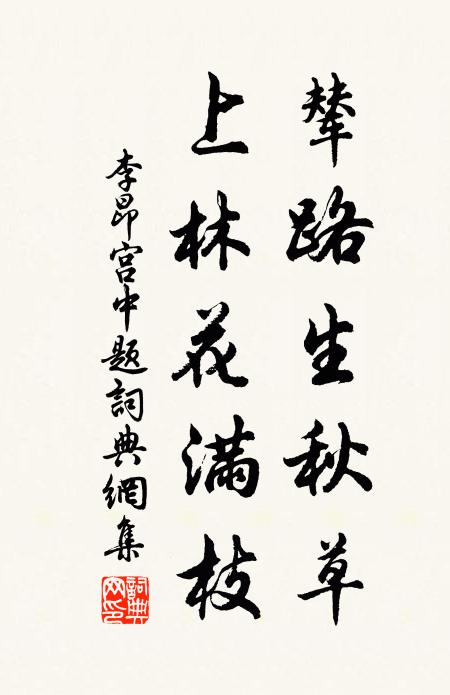 輦路生秋草
上林花满枝
李昂宮中題詞典網集
詞典
网印